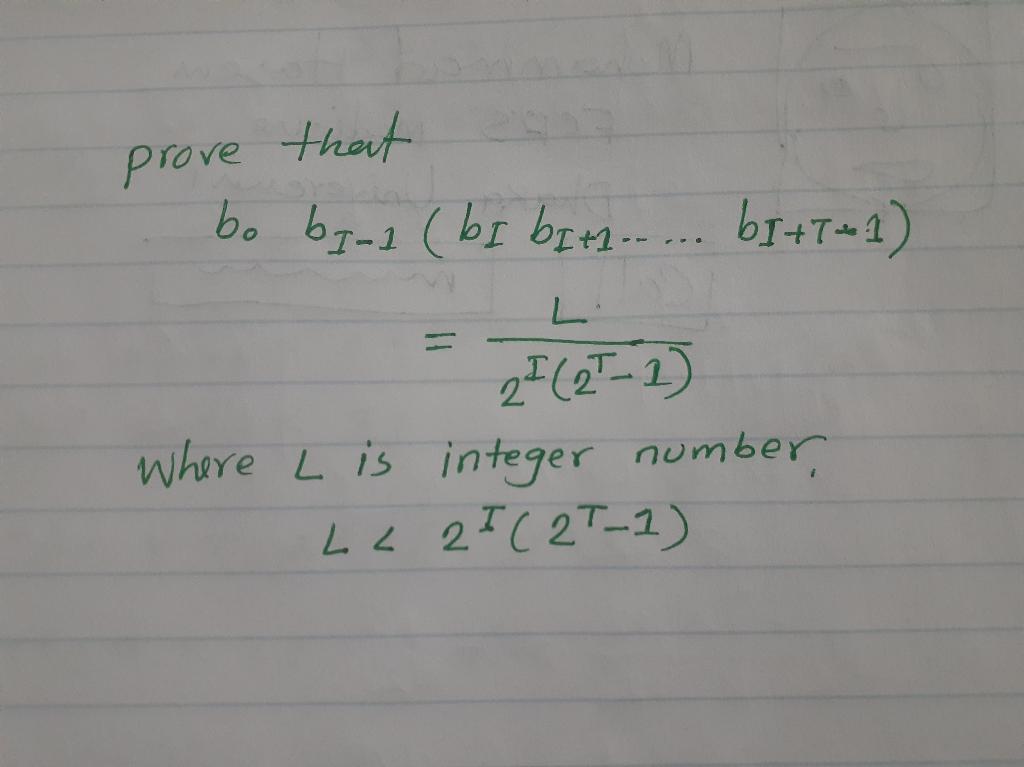 prove that
b₀ b_{I-1} (b_I b_{I+1}..... b_{I+T-1})
= L / 2^I(2^T-1)
where L is integer number,
L < 2^I(2^T-1)